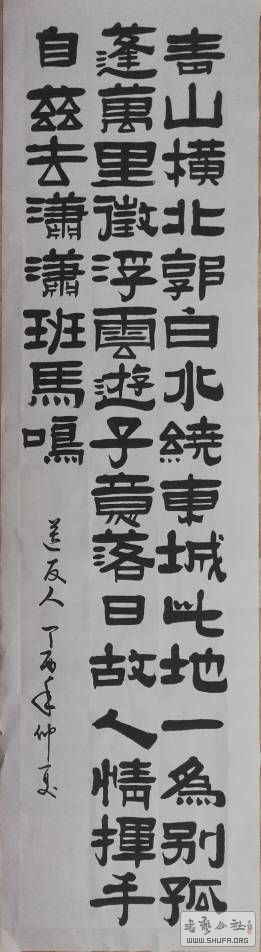 青山橫北郭白水繞東城此地一為別孤
蓬萬里徵浮雲遊子意落日故人情揮手
自茲去瀟瀟班馬鳴
送友人 丁酉年仲夏
書藝公社
WWW.SHUFA.ORG